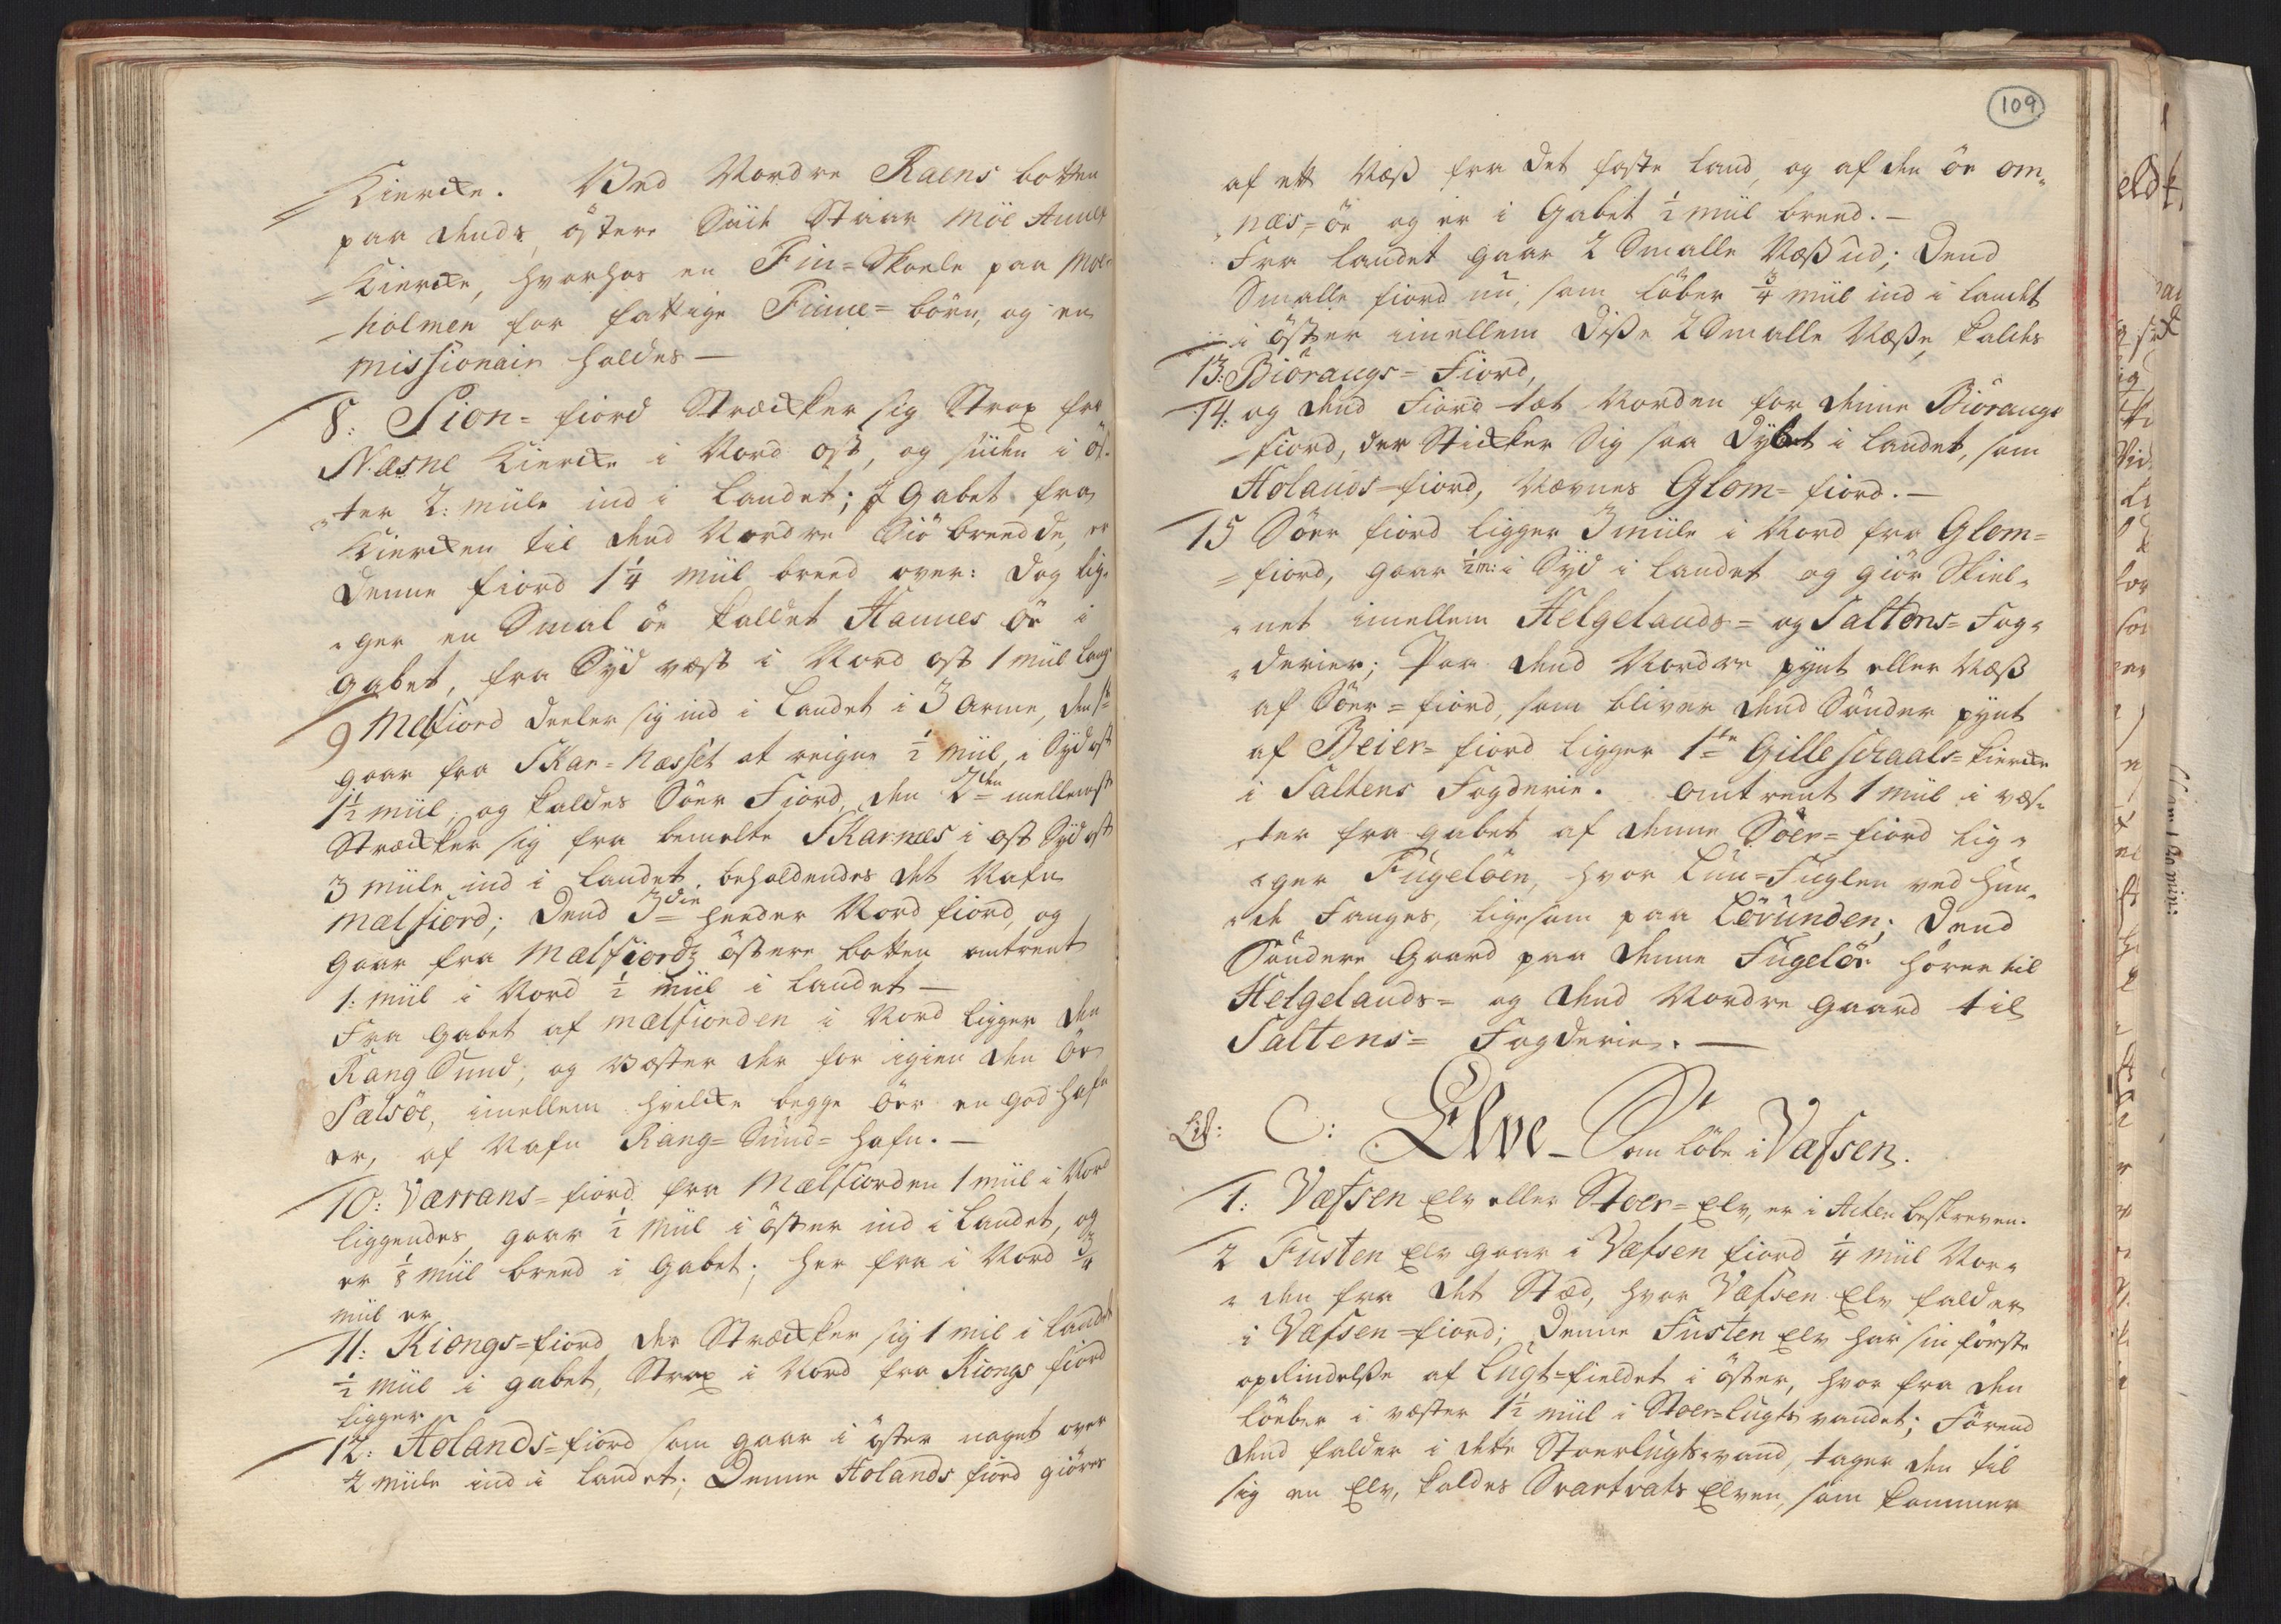 Kiercke. Ved Nordre Raens botten
paa dends östere Siide Staar Möe Annex
Kiercke, hvorhos en Fin-Skoele paa Moe-
holmen for fattige Finne-börn, og en
missionair holdes —
8: Sion-fiord Strecker sig Strax fra
Næsne Kiercke i Nord ost, og siiden i ös-
ter 2: miile ind i Landet; J Gabet fra
Kiercken til dend Nordre Siö breedde, er
denne fiord 1¼ miil breed over: dog lig-
ger en Smal öe kaldet Hannes öe i
gabet, fra Syd vest i Nord ost 1 miil lang
9 Melfiord deeler sig ind i Landet i 3 arme, den 1ste
gaar fra Skar-Næsset at reigne ½ miil, i Syd ost
1½ miil, og kaldes Söer Fiord, den 2den mellemst
Strecker sig fra bemelte Skarnæs i ost Syd ost
3 miile ind i Landet, beholdendes det Nafn
mælfiord; Dend 3die heeder Nord fiord, og
gaar fra Mælfiords östere botten omtrent
1: miil i Nord ½ miil i Landet —
Fra Gabet af mælfiorden i Nord ligger den
Rang Sund, og væster der for igien den Öe
Selsöe, imellem hvilcke begge öer en god hafn
er, af Nafn Rang-Sund-hafn. —
10: Værrans-fiord fra Mælfiorden 1 miil i Nord
liggendes gaar ½ Miil i öster ind i Landet, og
er ⅛ miil breed i Gabet; her fra i Nord ¾
miil er
11: Kiongs-fiord der Strecker sig 1 miil i Landet
½ miil i gabet, Strax i Nord fra Kiongs fiord
ligger
12: Holands-fiord som gaar i öster noget over
2 miile ind i Landet; Denne Holands fiord giöres
109
af ett Næss fra det faste Land, og af den öe om-
næs-öe og er i Gabet ½ miil breed. —
Fra Landet gaar 2 Smalle Næss ud; Dend
Smalle fiord nu, som löber ¾ miil ind i Landet
i öster imellem disse 2 Smalle Næsse, kaldes
13: Biörangs-Fiord,
14. og dend Fiord tæt Norden for denne Biörangs
fiord, der Sticker Sig saa dybet i Landet, som
Holands-fiord, Nævnes Glom-fiord. —
15 Söer fiord ligger 3 miile i Nord fra Glom-
fiord, gaar ½ m: i Syd i Landet og giör Skiel-
net imellem Helgelands- og Saltens-Fog-
derier; Paa dend Nordre pynt eller Næss
af Söer-fiord, som bliver dend Sönder pynt
af Beier-fiord ligger 1ste Gilleschaals-Kiercke
i Saltens Fogderie. Omtrent 1 miil i væs-
ter fra gabet af denne Söer-fiord lig-
ger Fugelöen, hvor Lun-Fuglen ved hun-
de Fanges, ligesom paa Lövunden; Dend
Söndere Gaard paa denne Fugelöe hörer til
Helgelands- og dend Nordre Gaard til
Saltens-Fogderie. —
Lit: C: Elve-Som löbe i Vafsen.
1: Væfsen Elv eller Stoer-Elv, er i Acten beskreven.
2 Fusten Elv gaar i Væfsen fiord ¼ miil Nor-
den fra det Stæd, hvor Væfsen Elv falder
i Væfsen-fiord; Denne Fusten Elv har sin förste
oprindelse af Lugt-fieldet i öster, hvor fra den
löeber i væster 1½ miil i Stoer-Lugts vandet; Förend
dend falder i dette Stoerlugts-vand, tager den til
sig en Elv, kaldes Svartvats Elven, som kommer